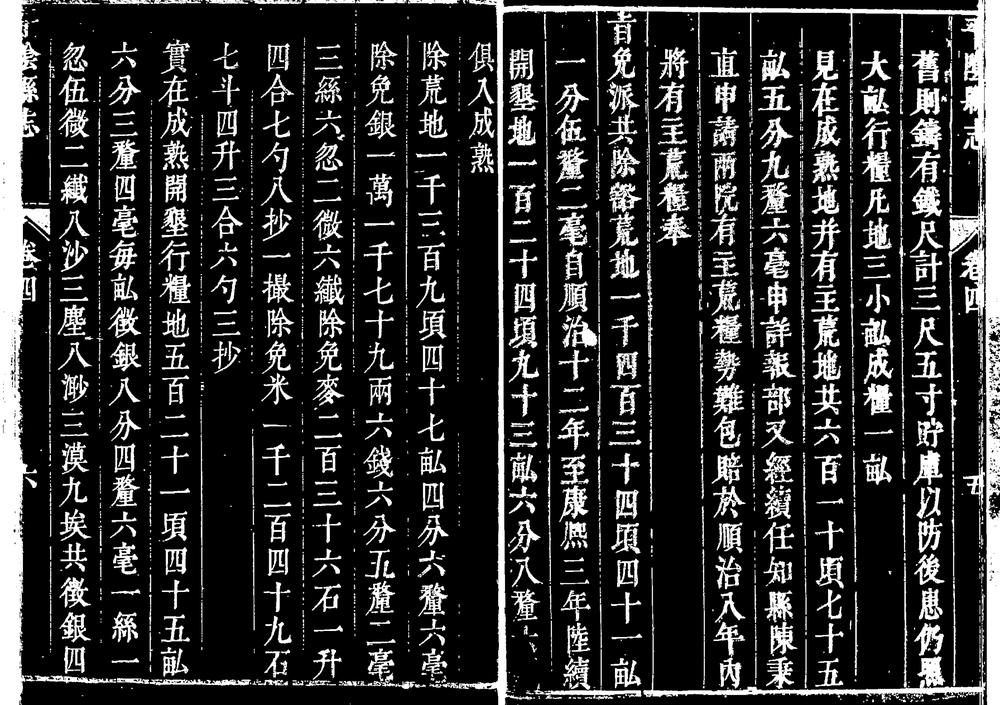 平陰縣志 卷四 五
舊則鑄有鐵尺計三尺五寸貯庫以防後患仍照
大畝行糧凡地三小畝成糧一畝
見在成熟地并有主荒地共六百一十頃七十五
畝五分九釐六毫申詳報部又經續任知縣陳秉
直申請兩院有主荒糧勢難包賠於順治八年內
將有主荒糧奉
旨免派共除豁荒地一千四百三十四頃四十一畝
一分伍釐二毫自順治十二年至康熙三年陸續
開墾地一百二十四頃九十三畝六分八釐
俱入成熟
除荒地一千三百九頃四十七畝四分六釐六毫
除免銀一萬一千七十九兩六錢六分五釐二毫
三絲六忽二微六纖除免麥二百三十六石一升
四合七勺八抄一撮除免米一千二百四十九石
七斗四升三合六勺三抄
實在成熟開墾行糧地五百二十一頃四十五畝
六分三釐四毫每畝徵銀八分四釐六毫一絲一
忽伍微二纖八沙三塵八渺三漠九埃共徵銀四
陰縣志 卷四 六